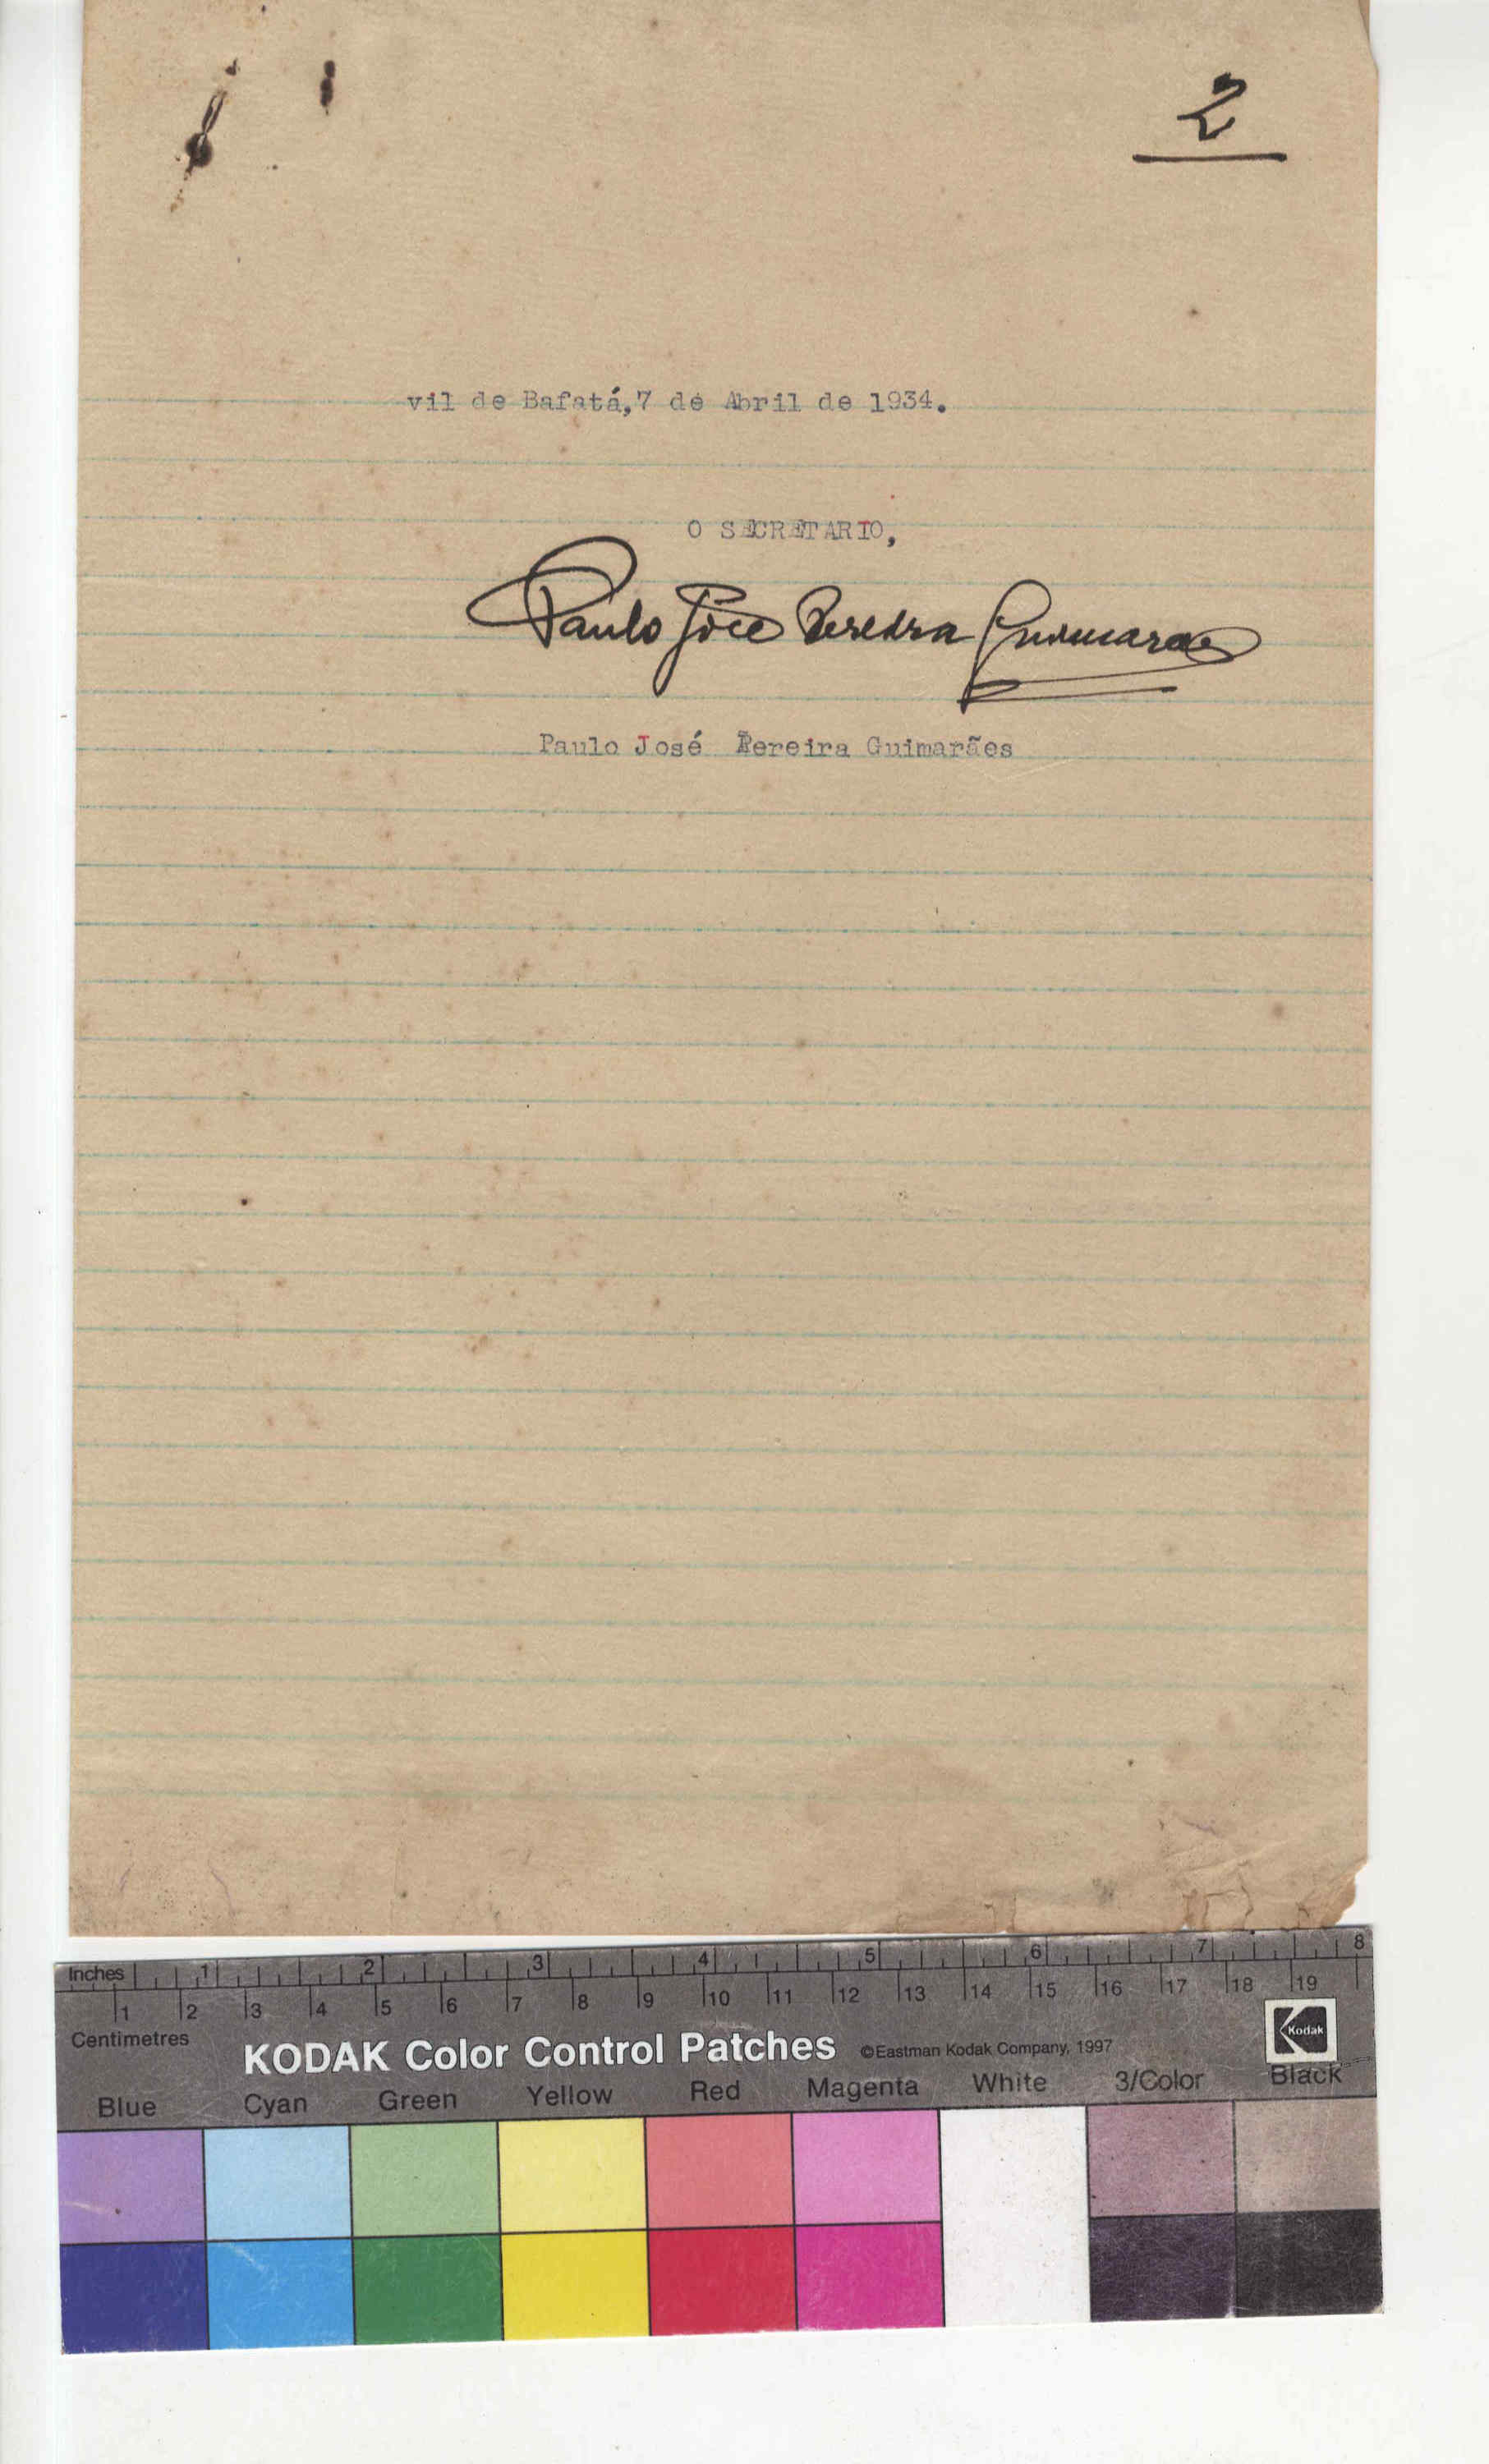 2
vil de Bafatá,7 de Abril de 1934.
O SECRETARIO,
Paulo José Pereira Guimarães
Paulo José Pereira Guimarães
Inches 1 2 3 4 5 6 7 8
1 2 3 4 5 6 7 8 9 10 11 12 13 14 15 16 17 18 19
Centimetres
KODAK Color Control Patches ©Eastman Kodak Company, 1997 Kodak
Blue Cyan Green Yellow Red Magenta White 3/Color Black